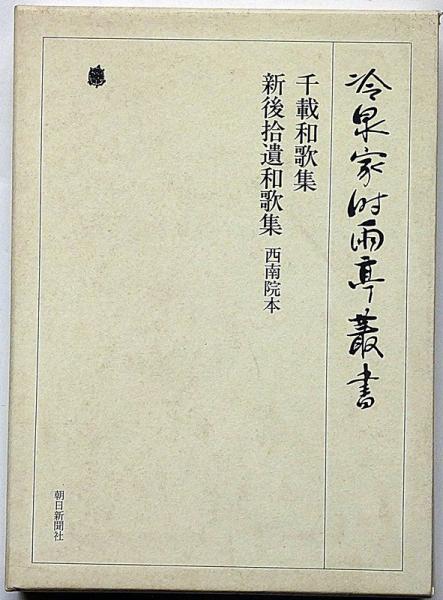 冷泉家时雨亭叢書
千載和歌集
新後拾遺和歌集 西南院本
朝日新聞社